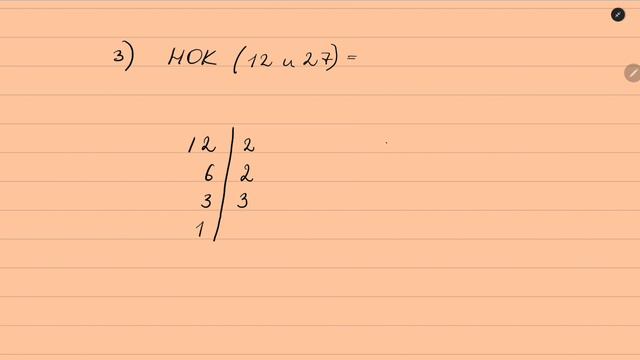 3) НОК (12 и 27) =
12 | 2
6 | 2
3 | 3
1 |